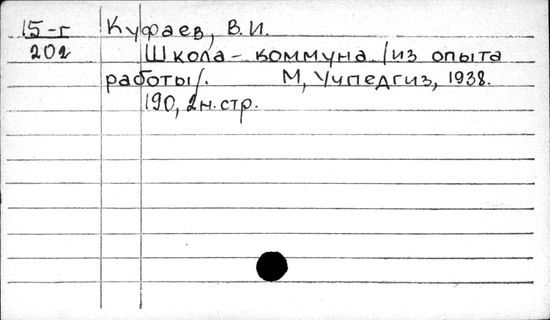 15-г Куфаев, В.И.
202 Школа-коммуна /из опыта
работы/. М, Учпедгиз, 1938.
190, 2н.стр.